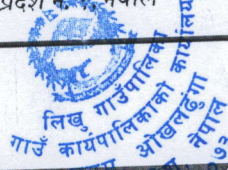 प्रदेश नं. १, नेपाल
लिखु गाउँपालिका
गाउँ कार्यपालिकाको कार्यालय
ओखलढुंगा
नेपाल